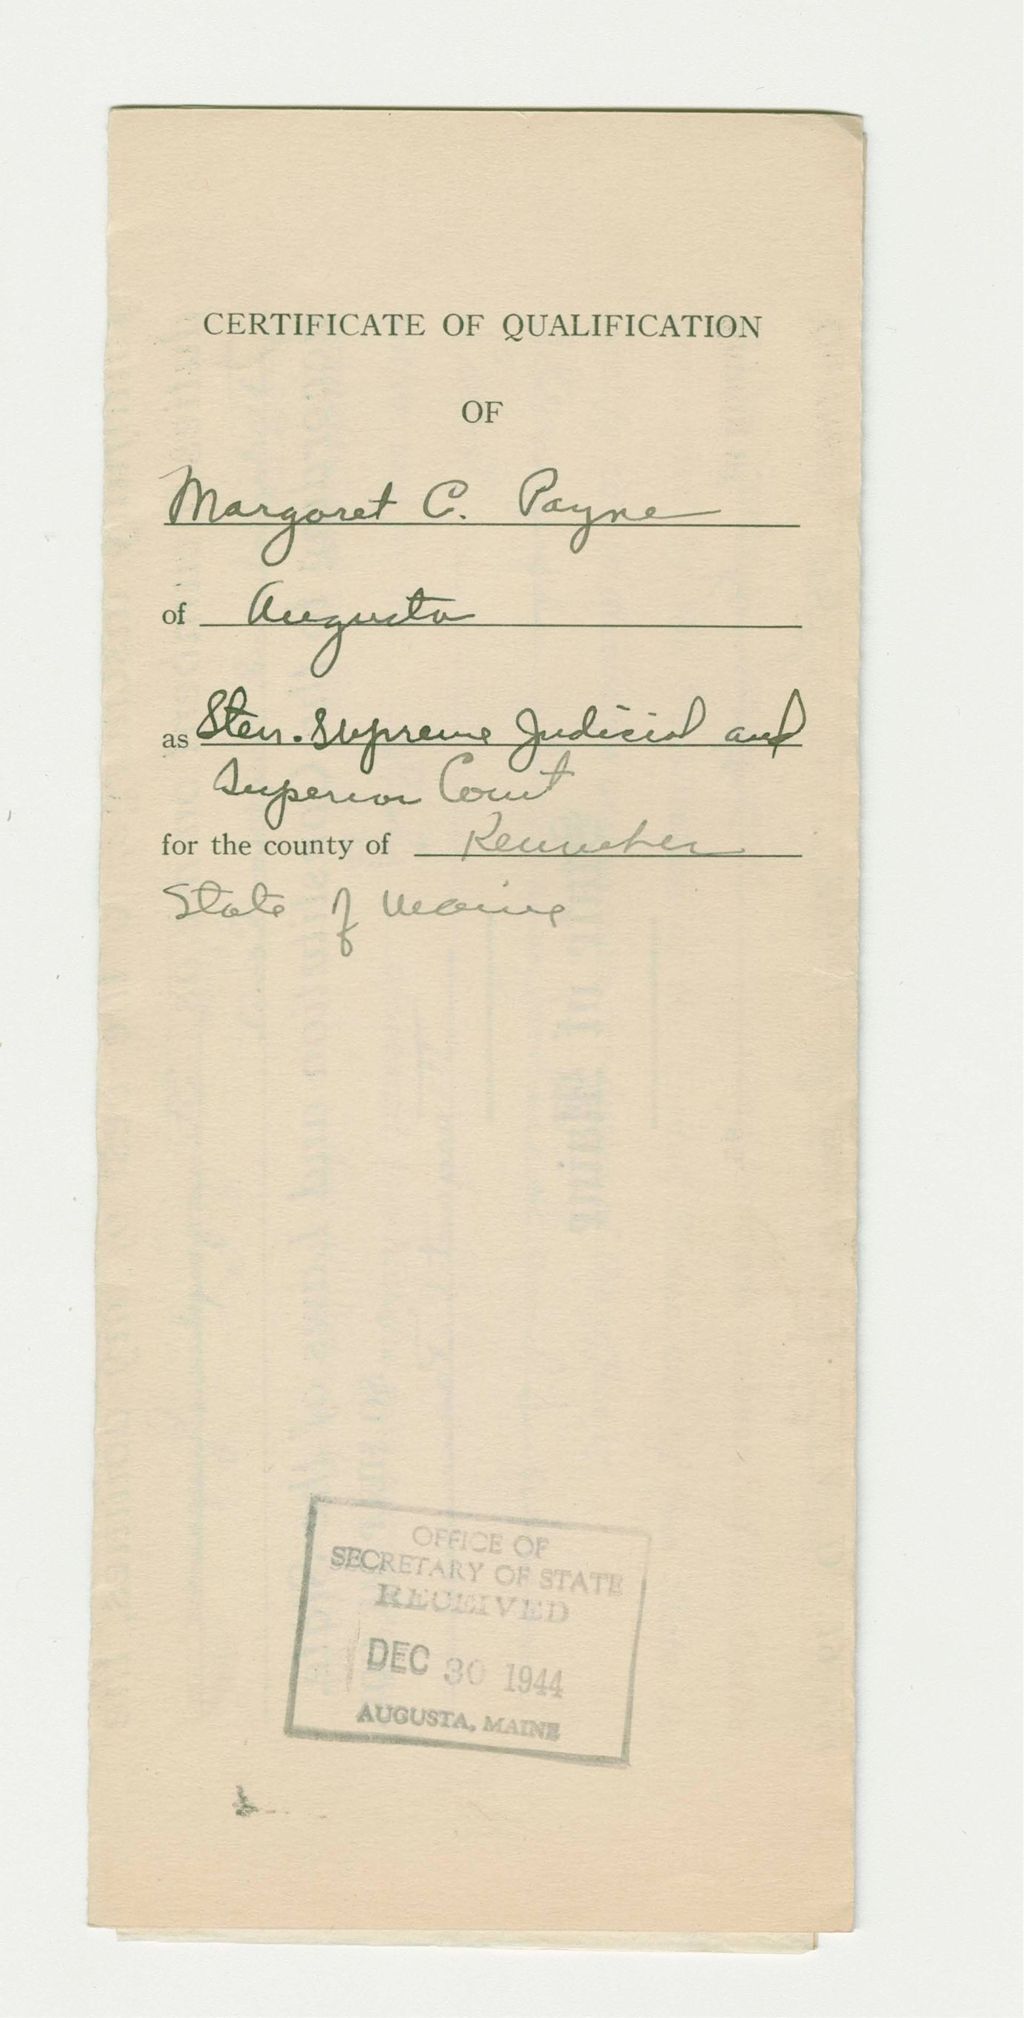 CERTIFICATE OF QUALIFICATION
OF
Margaret C. Payne
of Augusta
as Sten. Supreme Judicial and
Superior Court
for the county of Kennebec
State of Maine
OFFICE OF
SECRETARY OF STATE
RECEIVED
DEC 30 1944
AUGUSTA, MAINE